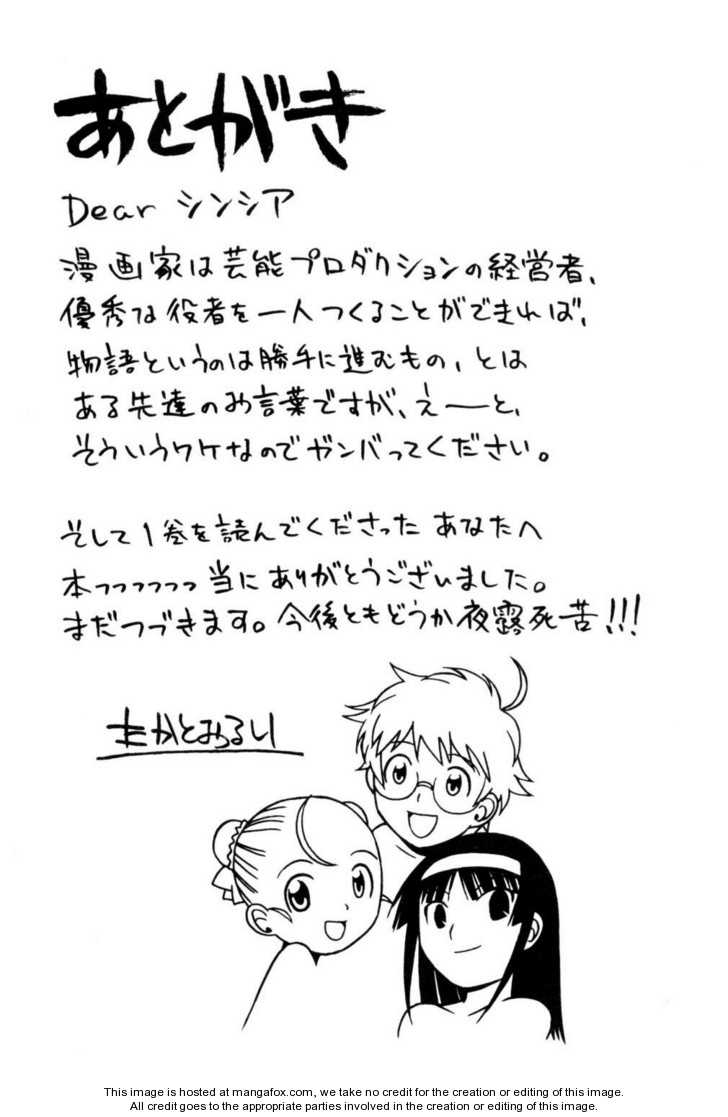 あとがき
Dear シンシア
漫画家は芸能プロダクションの経営者、
優秀な役者を一人つくることができれば、
物語というのは勝手に進むもの、とは
ある先達のお言葉ですが、えーと、
そういうワケなのでガンバってください。
そして1巻を読んでくださった あなたへ
本っっっっっっ当に ありがとうございました。
まだつづきます。今後ともどうか夜露死苦!!!
This image is hosted at mangafox.com, we take no credit for the creation or editing of this image.
All credit goes to the appropriate parties involved in the creation or editing of this image.